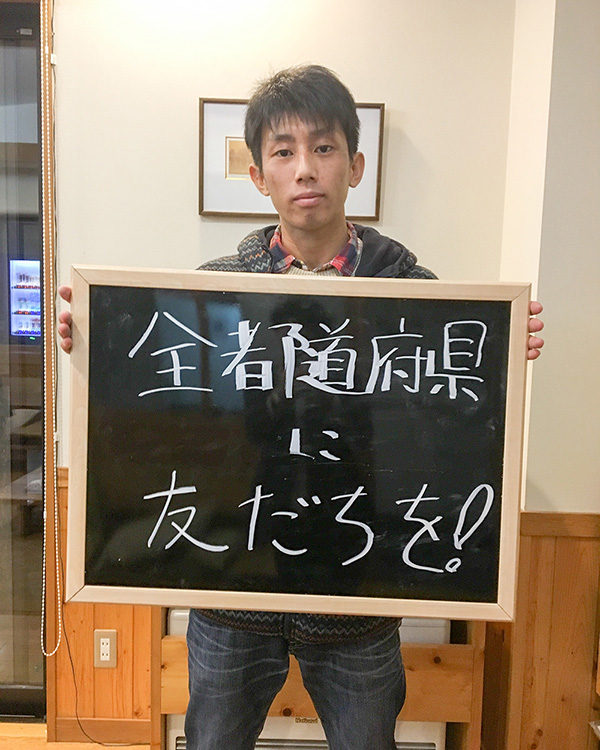 全都道府県
に
友だちを!